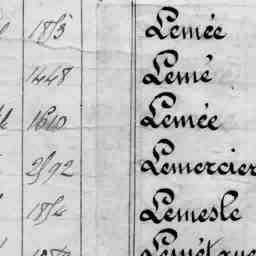 1815 Lemée
1448 Lemé
1610 Lemée
2592 Lemercier
1854 Lemesle